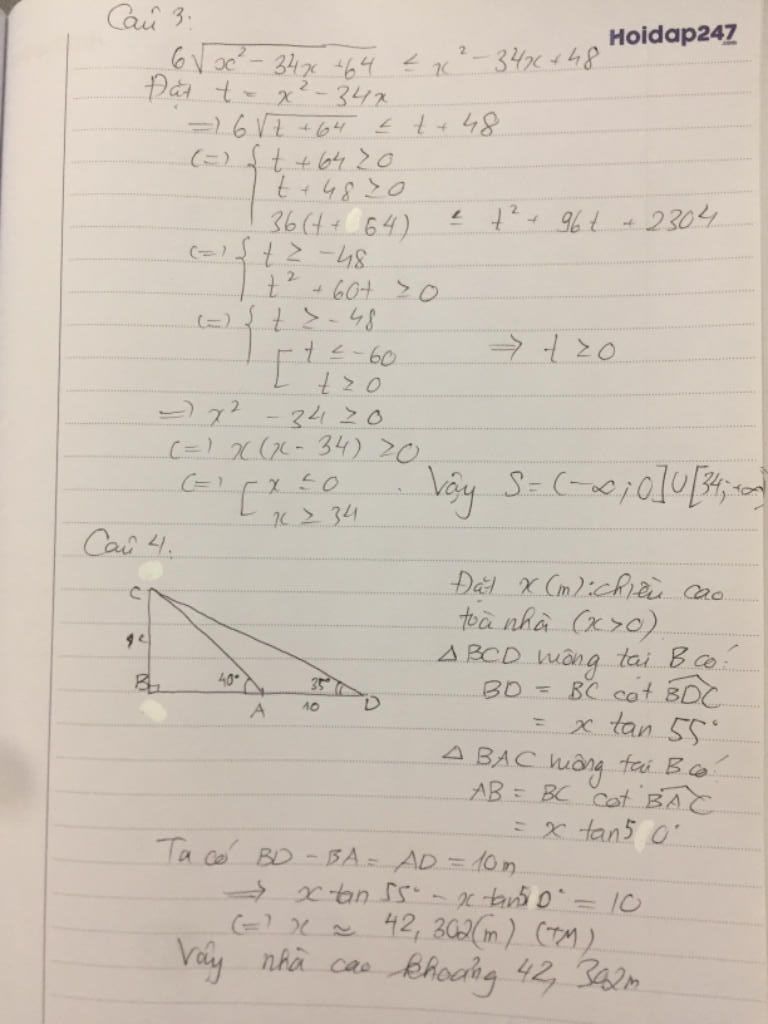 Câu 3:
Hoidap247.com
6√(x² - 34x + 64) ≤ x² - 34x + 48
Đặt t = x² - 34x
=> 6√(t + 64) ≤ t + 48
(=) { t + 64 ≥ 0
t + 48 ≥ 0
36(t + 64) ≤ t² + 96t + 2304
(=) { t ≥ -48
t² + 60t ≥ 0
(=) { t ≥ -48
[ t ≤ -60 => t ≥ 0
t ≥ 0
=> x² - 34 ≥ 0
(=) x(x - 34) ≥ 0
(=) [ x ≤ 0 . Vậy S = (-∞; 0] U [34; +∞)
x ≥ 34
Câu 4:
C
B
40°
A
35°
10
D
Đặt x (m): chiều cao
toà nhà (x > 0)
Δ BCD vuông tại B có:
BD = BC cot BDC
= x tan 55°
Δ BAC vuông tại B có:
AB = BC cot BAC
= x tan 50°
Ta có BD - BA = AD = 10m
=> x tan 55° - x tan 50° = 10
(=) x ≈ 42,302(m) (TM)
Vậy nhà cao khoảng 42,302m